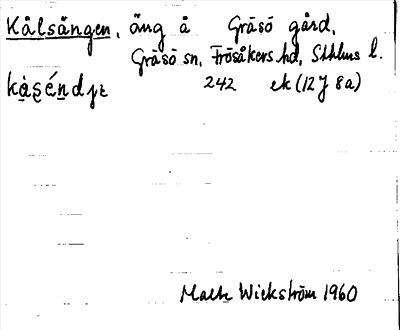 Kålsängen, äng å Gräsö gård,
Gräsö sn, Frösåkers hd, Sthlms l.
242 ek (12J 8a)
Malte Wickström 1960